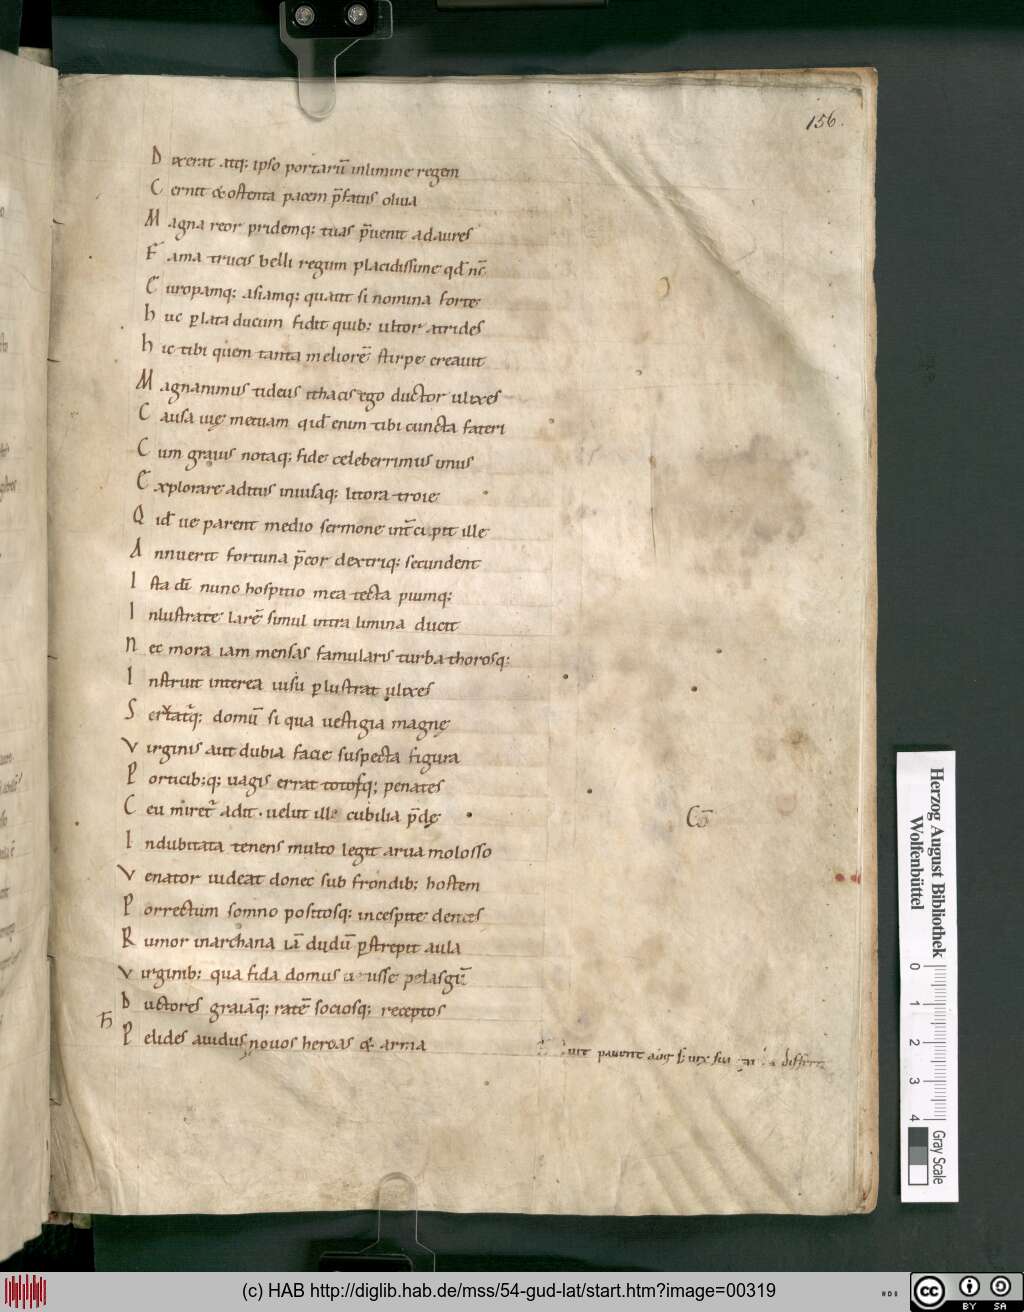 156.
D ixerat atq; ipso portarū inlimine regem
C ernit & ostenta pacem p̄fatus oliua
M agna reor pridemq; tuas p̄uenit adaures
F ama trucis belli regum placidissime qd̄ nc̄
E uropamq; asiamq; quatit si nomina forte
h uc plata ducum fidit quib; ultor atrides
h ic tibi quem tanta meliorē stirpe creauit
M agnanimus tideus ithacis ego ductor ulixes
C ausa uię metuam qid̄ enim tibi cuncta fateri
C um graius notaq; fide celeberrimus unus
E xplorare aditus inuisaq; litora troie
Q id ue parent medio sermone int̄cipit ille
A nnuerit fortuna p̄cor dextriq; secundent
I sta di nunc hospitio mea tecta piumq;
I nlustrate larē simul intra limina ducit
N ec mora iam mensas famularis turba thorosq;
I nstruit interea uisu plustrat ulixes
S ertatq; domū si qua uestigia magnę
V irginis aut dubia facie suspecta figura
P orticib;q; uagis errat totosq; penates
C eu miret adit . uelut ille cubilia p̄dę
I ndubitata tenens multo legit arua molosso
V enator uideat donec sub frondib; hostem
P orrectum somno positosq; incespite dentes
R umor inarchana iā dudū pstrepit aula
V irginib; qua fida domus uenisse pelasgū
D uctores graiāq; ratē sociosq; receptos
P elides auidus nouos heroas & arma
Cō
differt
Herzog August Bibliothek
Wolfenbüttel
0 1 2 3 4
Gray Scale
(c) HAB http://diglib.hab.de/mss/54-gud-lat/start.htm?image=00319
cc BY SA